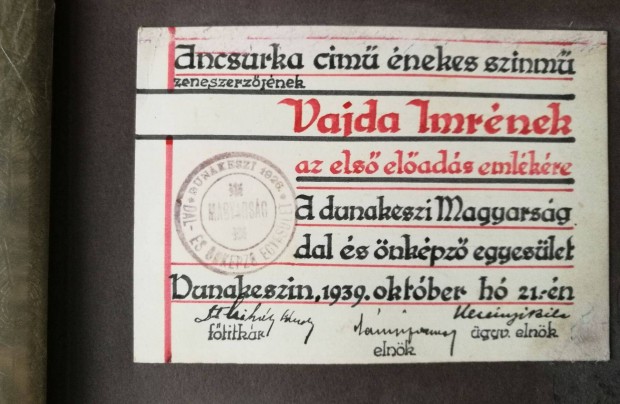 Ancsurka cimű énekes szinmű
zeneszerzőjének
Vajda Imrének
az első előadás emlékére
A dunakeszi Magyarság
dal és önképző egyesület
Dunakeszin, 1939. október hó 21.-én
főtitkár
elnök
ügyv. elnök
DUNAKESZI 1926.
MAGYARSÁG
DAL- ÉS